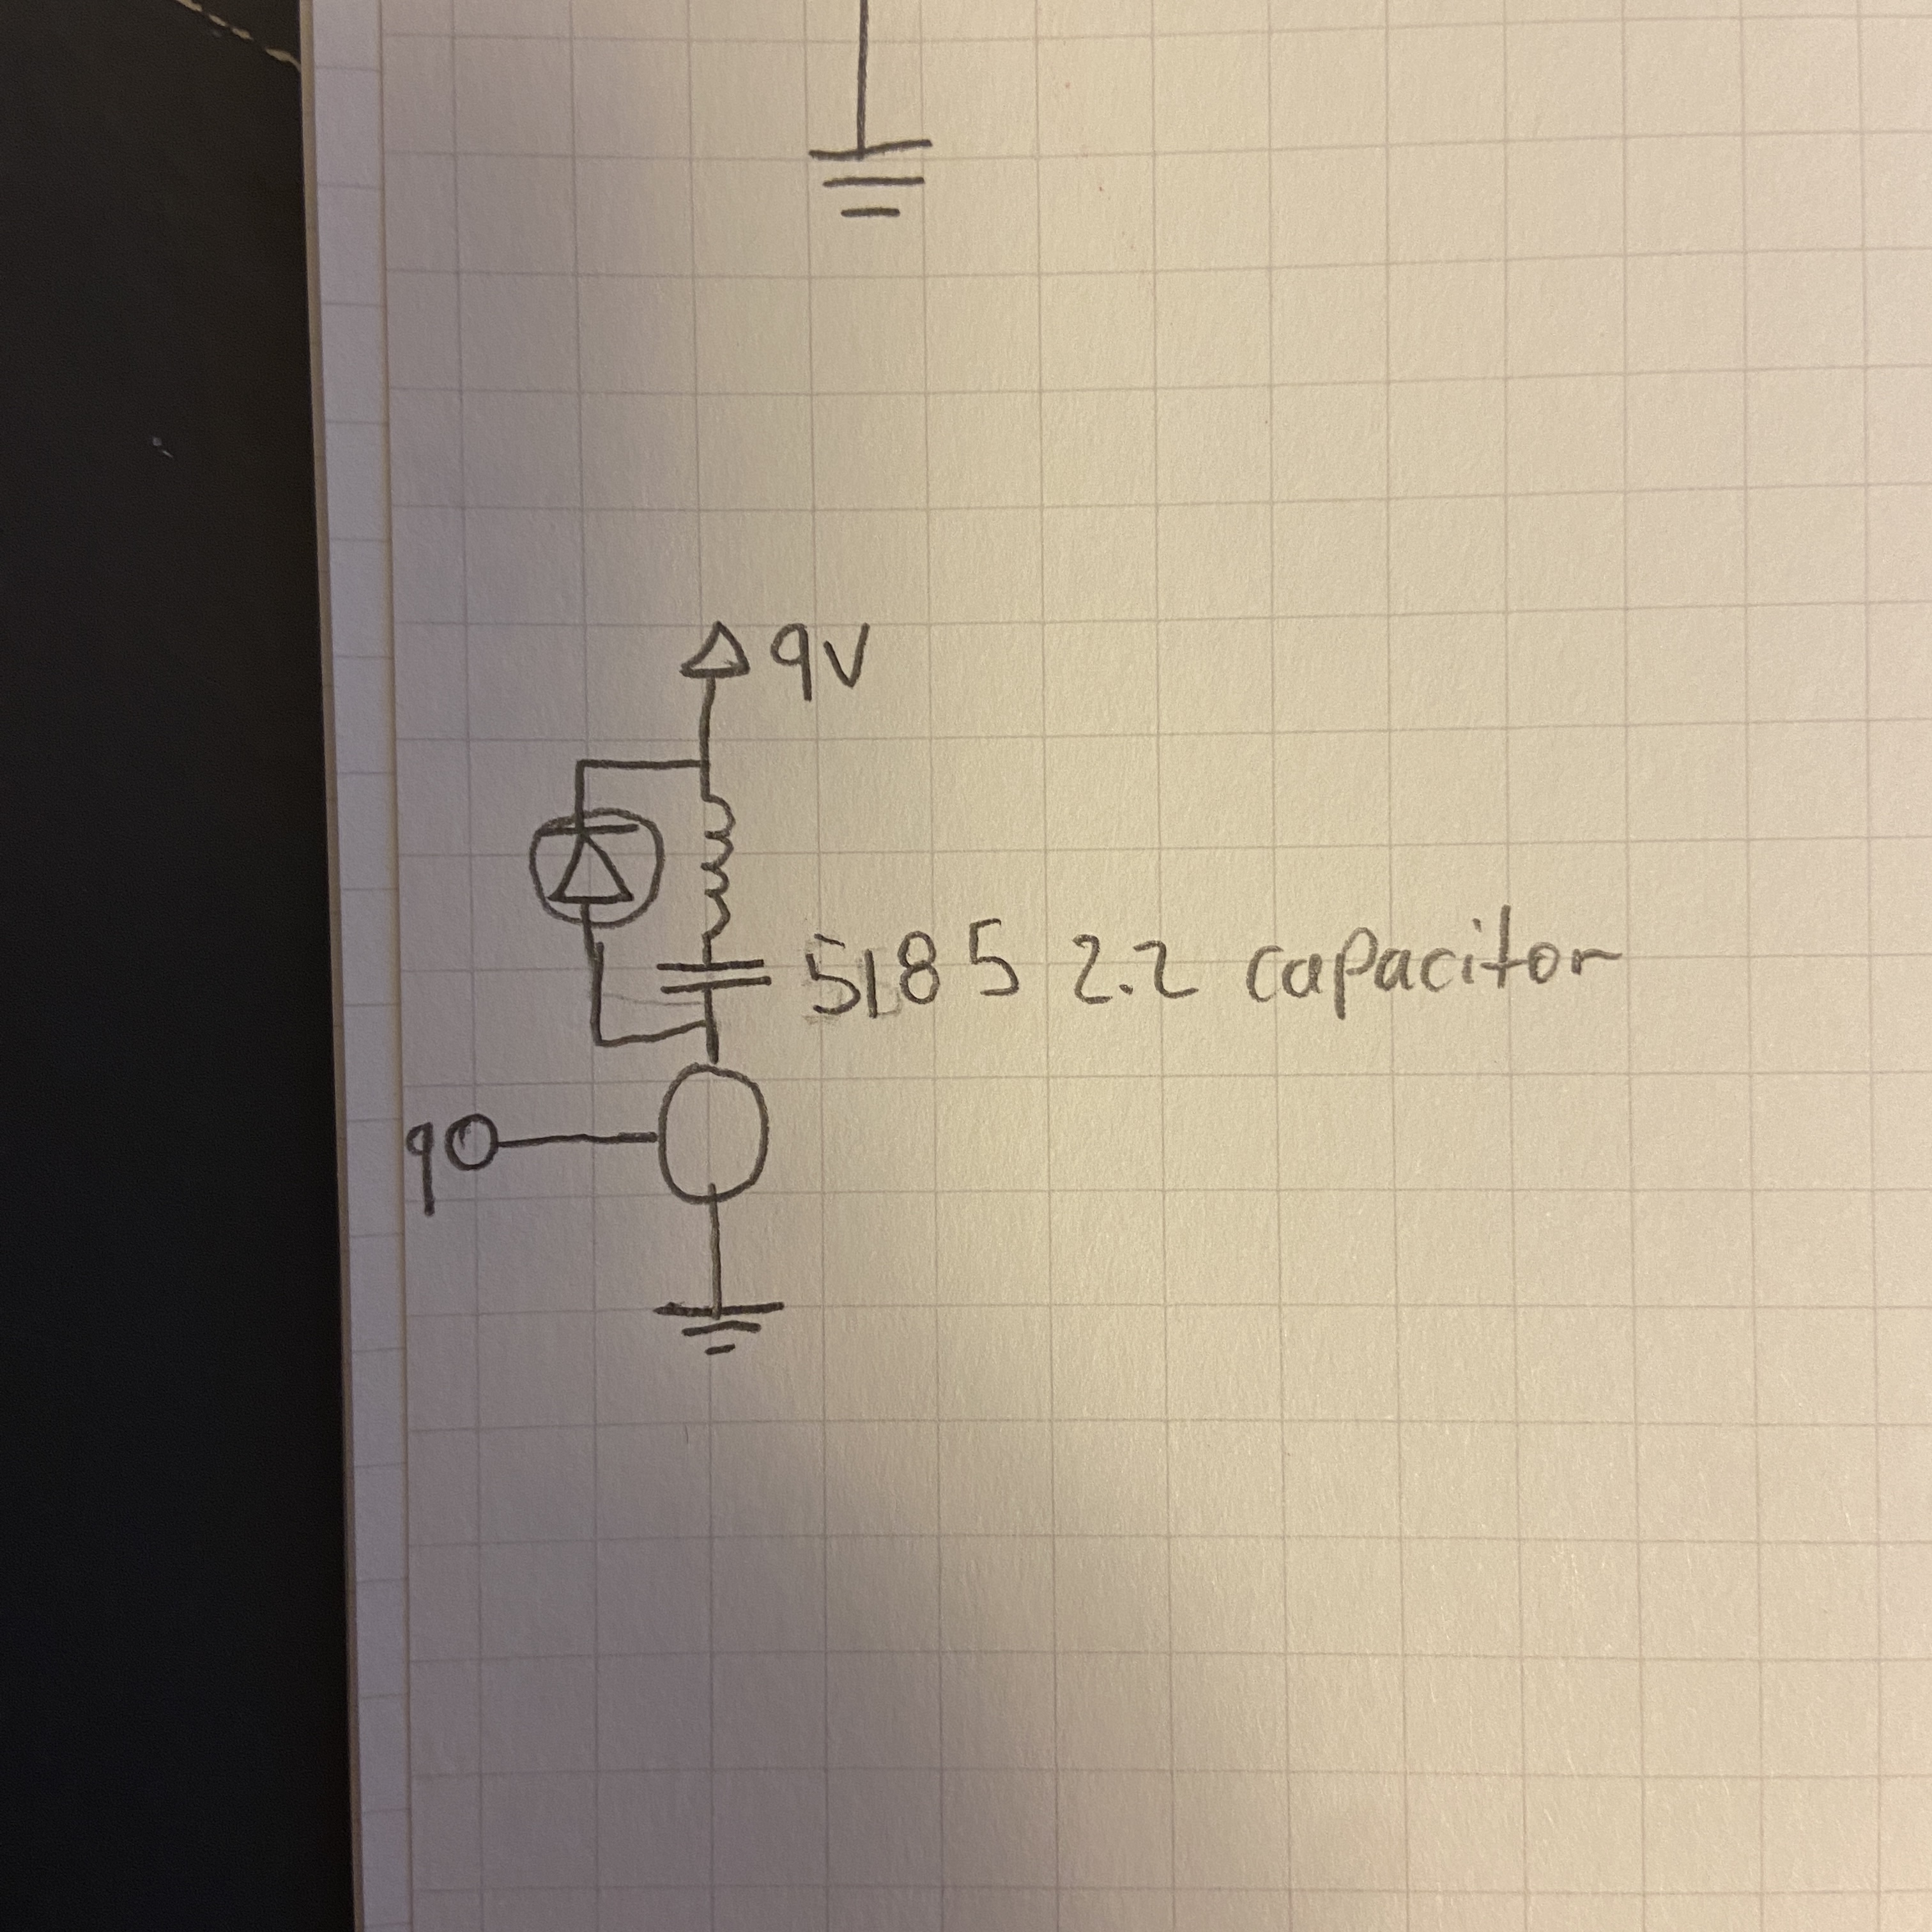 9V
5185 2.2 capacitor
9